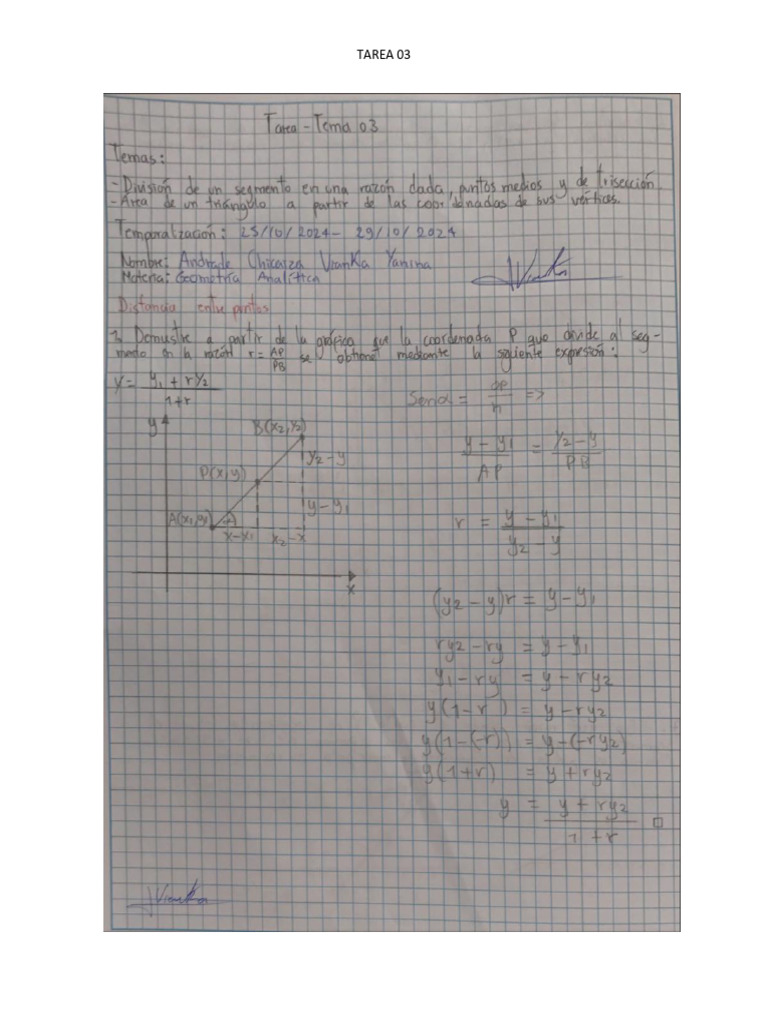 TAREA 03
Tarea - Tema 03
Temas:
- División de un segmento en una razón dada, puntos medios y de trisección.
- Área de un triángulo a partir de las coordenadas de sus vértices.
Temporalización: 25/10/2024 - 29/10/2024
Nombre: Andrade Chicaiza Vianka Yanina
Materia: Geometría Analítica
Vianka
Distancia entre puntos
1. Demuestre a partir de la gráfica que la coordenada P que divide al seg-
mento en la razón r = AP/PB se obtiene mediante la siguiente expresión:
y = (y₁ + ry₂)/(1+r)
Senα = op/h =>
y
B(x₂,y₂)
y₂-y
P(x,y)
y-y₁
A(x₁,y₁)
x-x₁ x₂-x
x
(y - y₁)/AP = (y₂-y)/PB
r = (y - y₁)/(y₂ - y)
(y₂ - y)r = y - y₁
ry₂ - ry = y - y₁
y₁ - ry = y - ry₂
y(1-r) = y - ry₂
y(1-(-r)) = y-(-ry₂)
y(1+r) = y + ry₂
y = (y + ry₂)/(1+r) □
Vianka